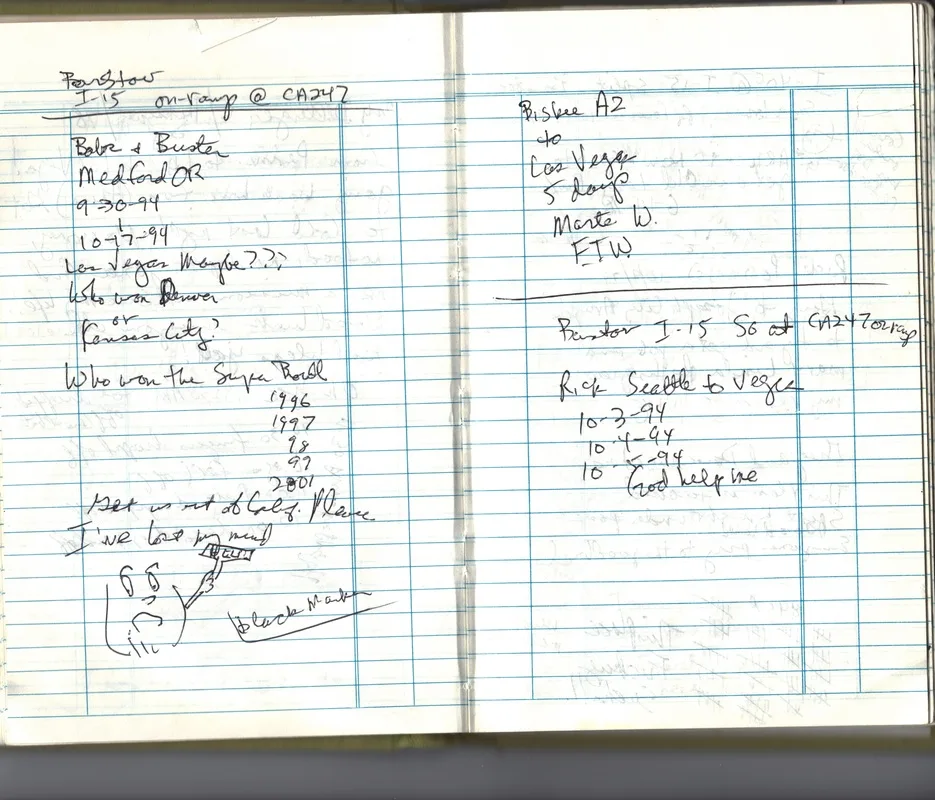 Barstow
I-15 on-ramp @ CA247
Babe & Buster
Medford OR
9-30-94
10-17-94
Las Vegas Maybe???
Who won Denver
or
Kansas City?
Who won the Super Bowl
1996
1997
98
99
2001
Get us out of Calif. Please
I've lost my mind
Black Marker
Bisbee AZ
to
Las Vegas
5 days
W.
F.T.W.
Barstow I-15 So at CA247 on ramp
Rick Seattle to Vegas
10-3-94
10-4-94
10-5-94
God help me